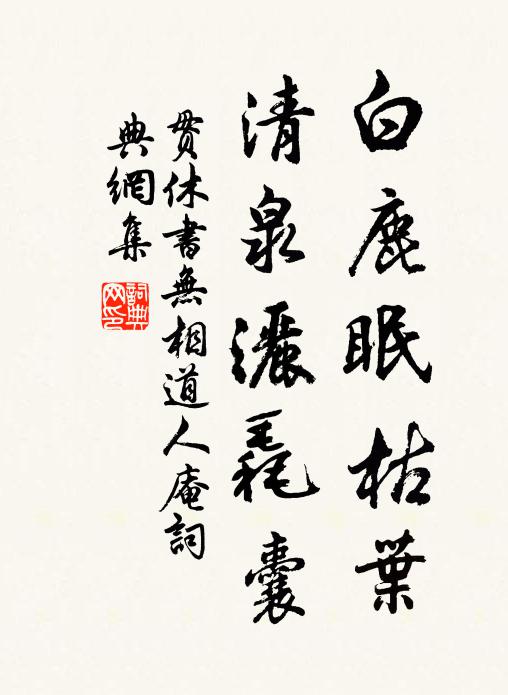 白鹿眠枯葉
清泉灑毳囊
貫休書無相道人庵詞
典網集
詞典
网印